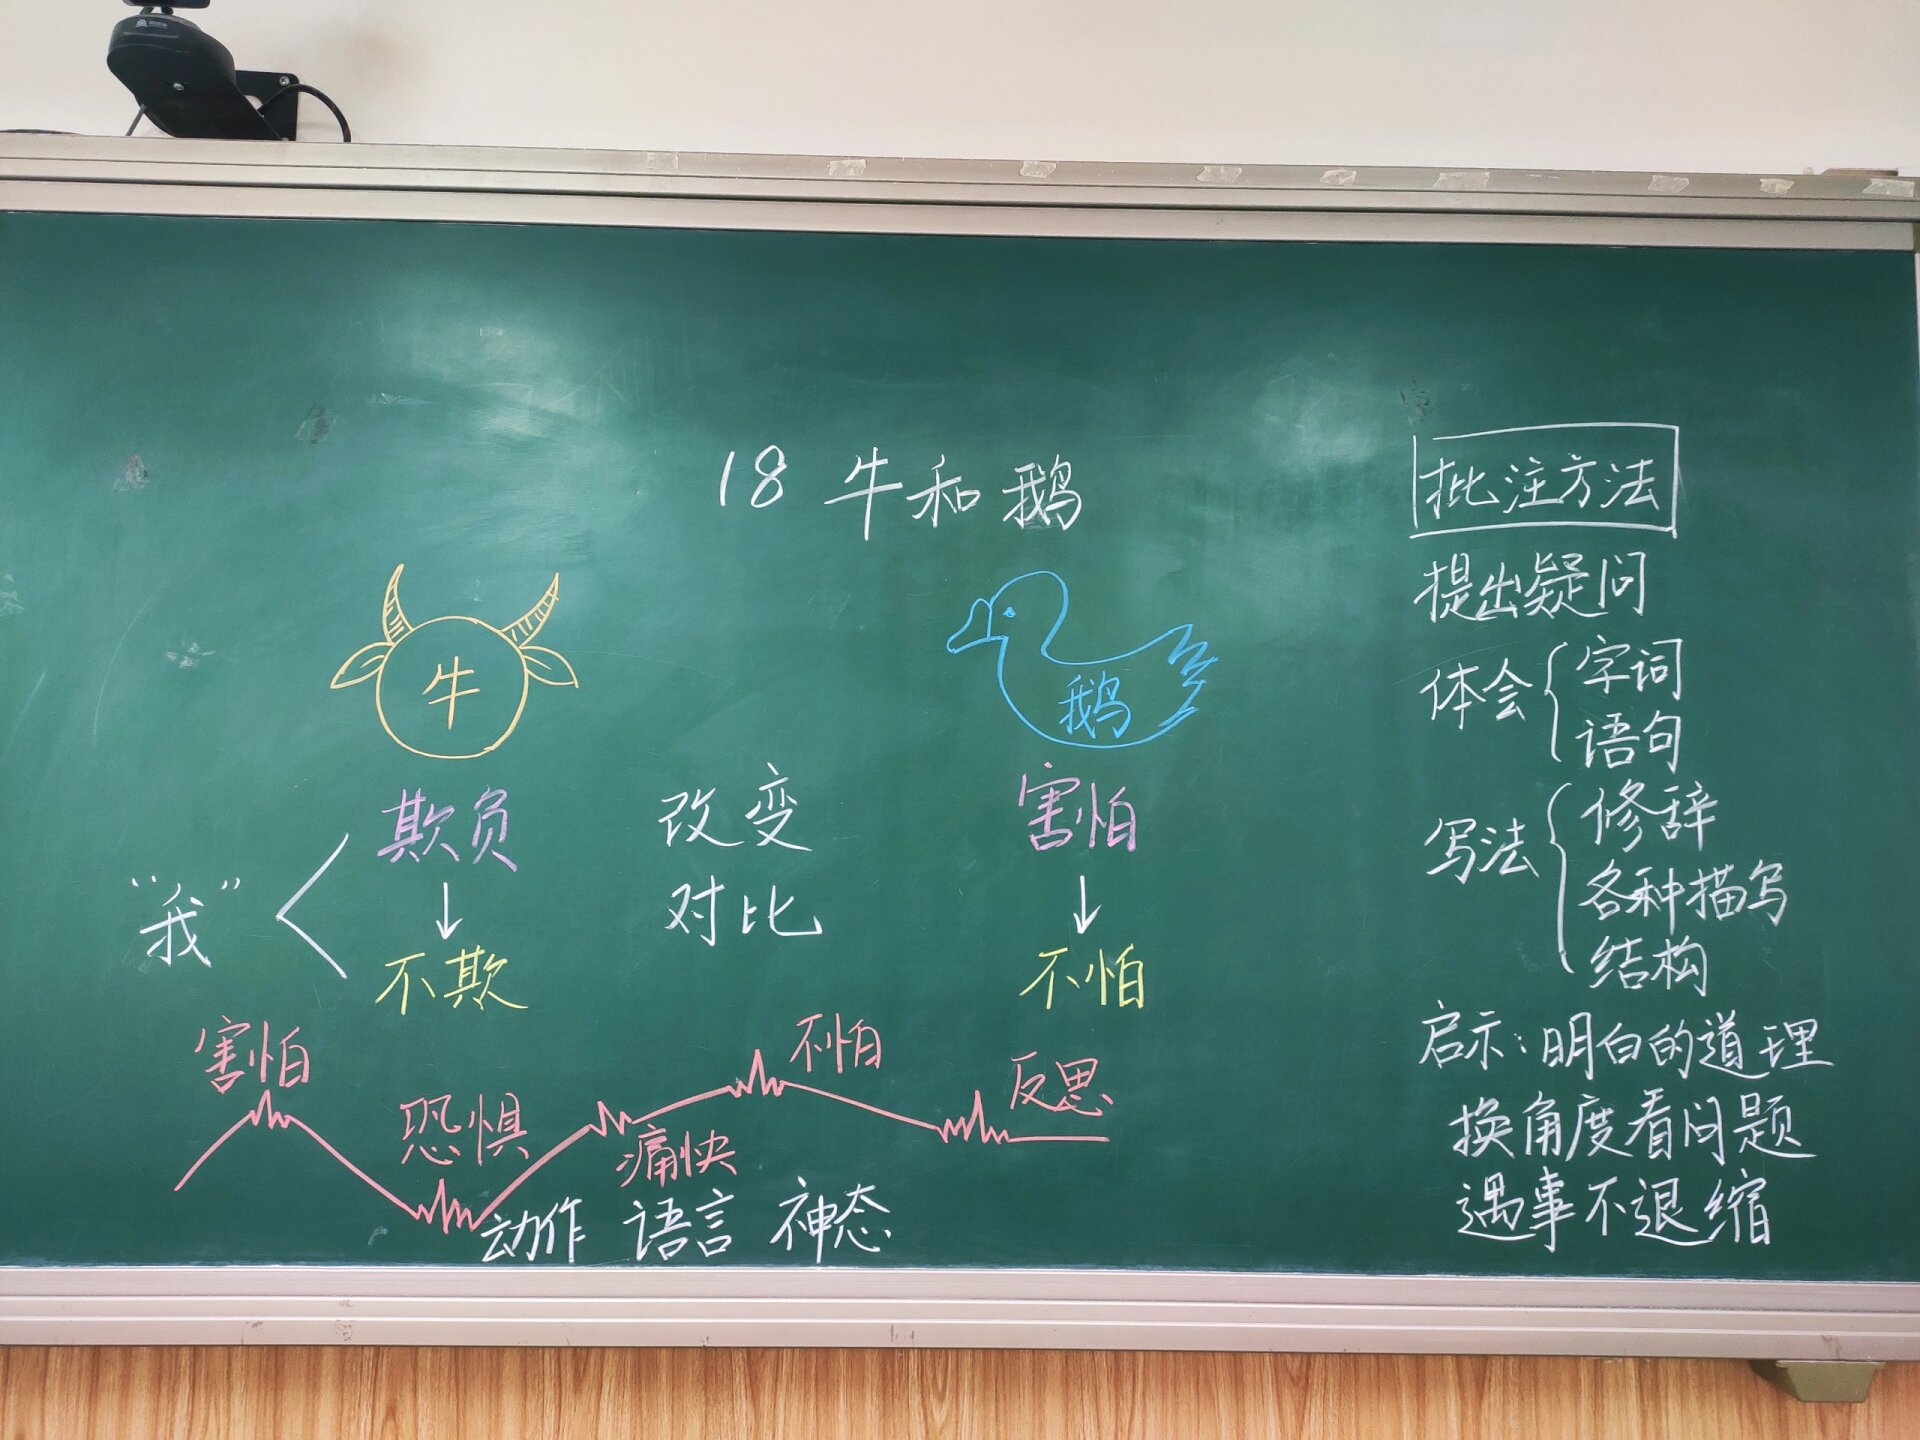 18 牛和鹅
牛
鹅
欺负 改变 害怕
“我” ↓ 对比 ↓
不欺 不怕
害怕 恐惧 痛快 不怕 反思
动作 语言 神态
批注方法
提出疑问
体会{字词
语句
写法{修辞
各种描写
结构
启示：明白的道理
换角度看问题
遇事不退缩